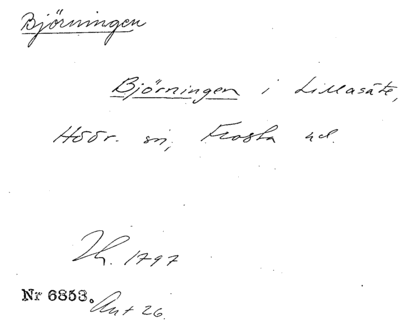 Björningen
Björningen i Lillasäte,
Höör. sn, Frosta hd.
Zh. 1797
Nr 6853.
Ant 26.